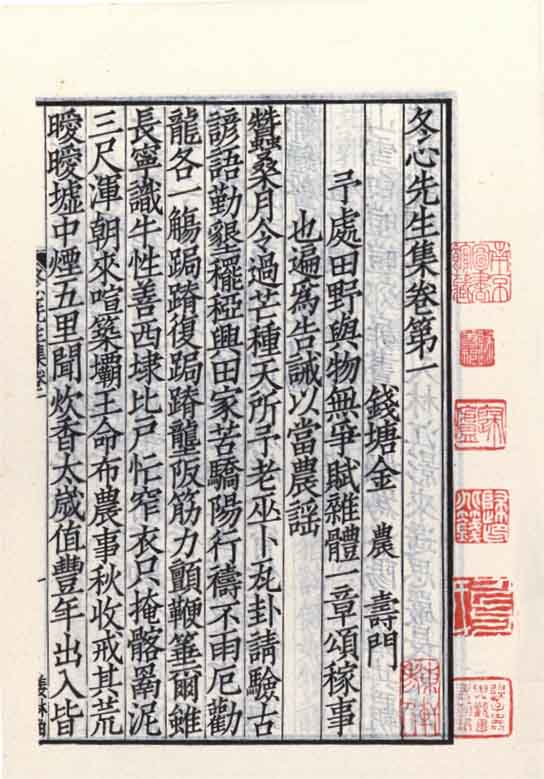 冬心先生集卷第一
錢塘金 農 壽門
予處田野與物無爭賦雜體一章頌稼事
也遍爲告誡以當農謡
蠶桑月令過芒種天所予老巫卜瓦卦請驗古
諺語勤墾䆉稏興田家苦驕陽行禱不雨厄勸
龍各一觴跼蹐復跼蹐壟阪筋力顫鞭箠爾雖
長寧識牛性善西埭比戶忙窄衣只掩骼罱泥
三尺渾朝來喧築壩王命布農事秋收戒其荒
曖曖墟中煙五里聞炊香太歲值豐年出入皆
冬心先生集卷一
一